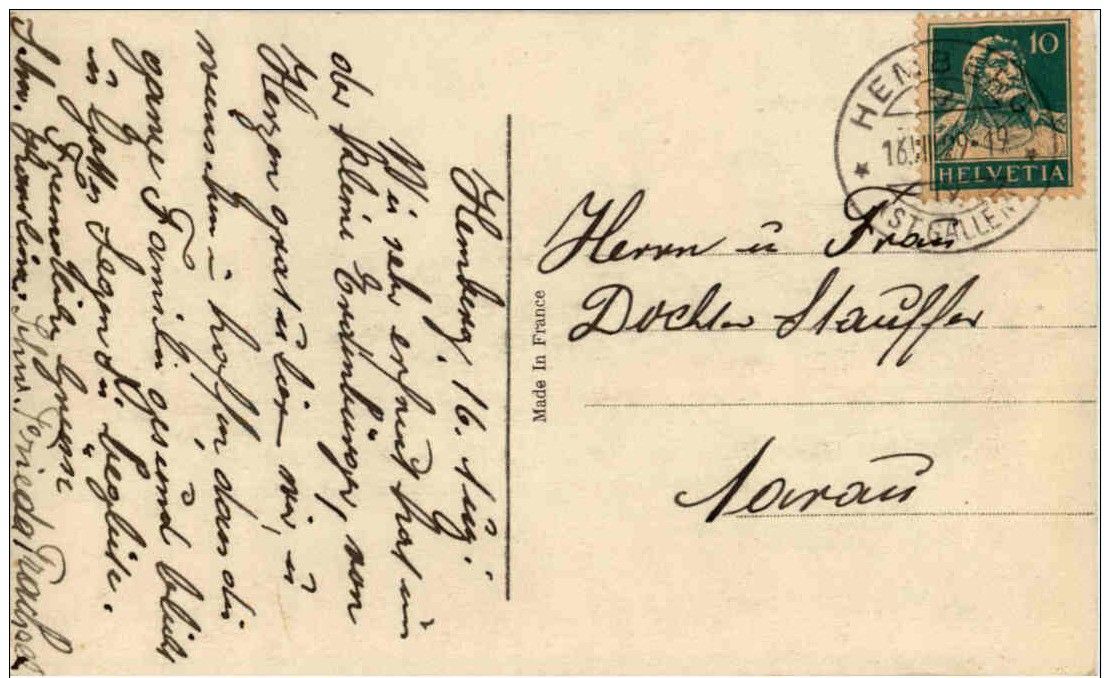 Hemberg, 16. Aug.
Wie sehr erfreut hat uns
der kleine Erdenbürger, von
Herzen gratulier wir, u
wünschen u hoffen dass die
ganze Familie gesund bleibt
u Gottes Segen Sie begleite.
Freundliche Grüsse
Schw. Schw. Frieda
Herrn u Frau
Dochter Stauffer
Aarau
Made In France
HEMBERG
16.VIII.29-19
(ST. GALLEN)
10
HELVETIA